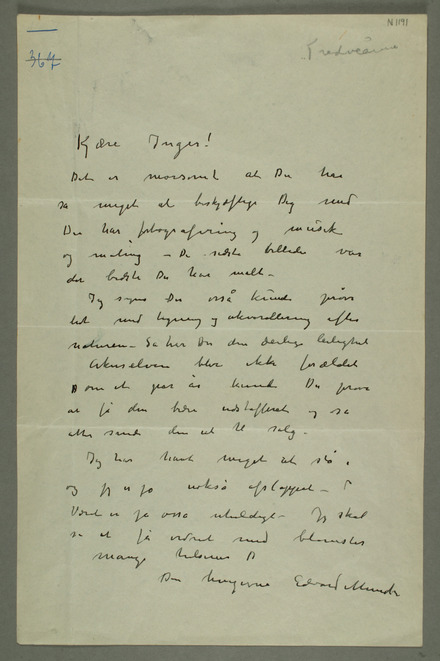 N 1191
367
Kjære Inger!
Det er morsomt at Du har
så meget at beskjæftige Dig med
Du har fotografering og musik
og maling – De sidste billeder var
det bedste Du har malt –
Jeg synes Du også kunde prøve
lidt med tegning og akvarellering efter
naturen – Så har Du den deilige leilighed
Akerselven blev ikke forældet
om et par år kunde Du prøve
at få den bedre udstafferet og så
atter sende den ud til salg –
Jeg har havt meget at stå i
og jeg er jo også afslappet –
Været er jo også – Jeg skal
se at få ordnet med blomster
mange hilsener
Din hengivne Edvard Munch